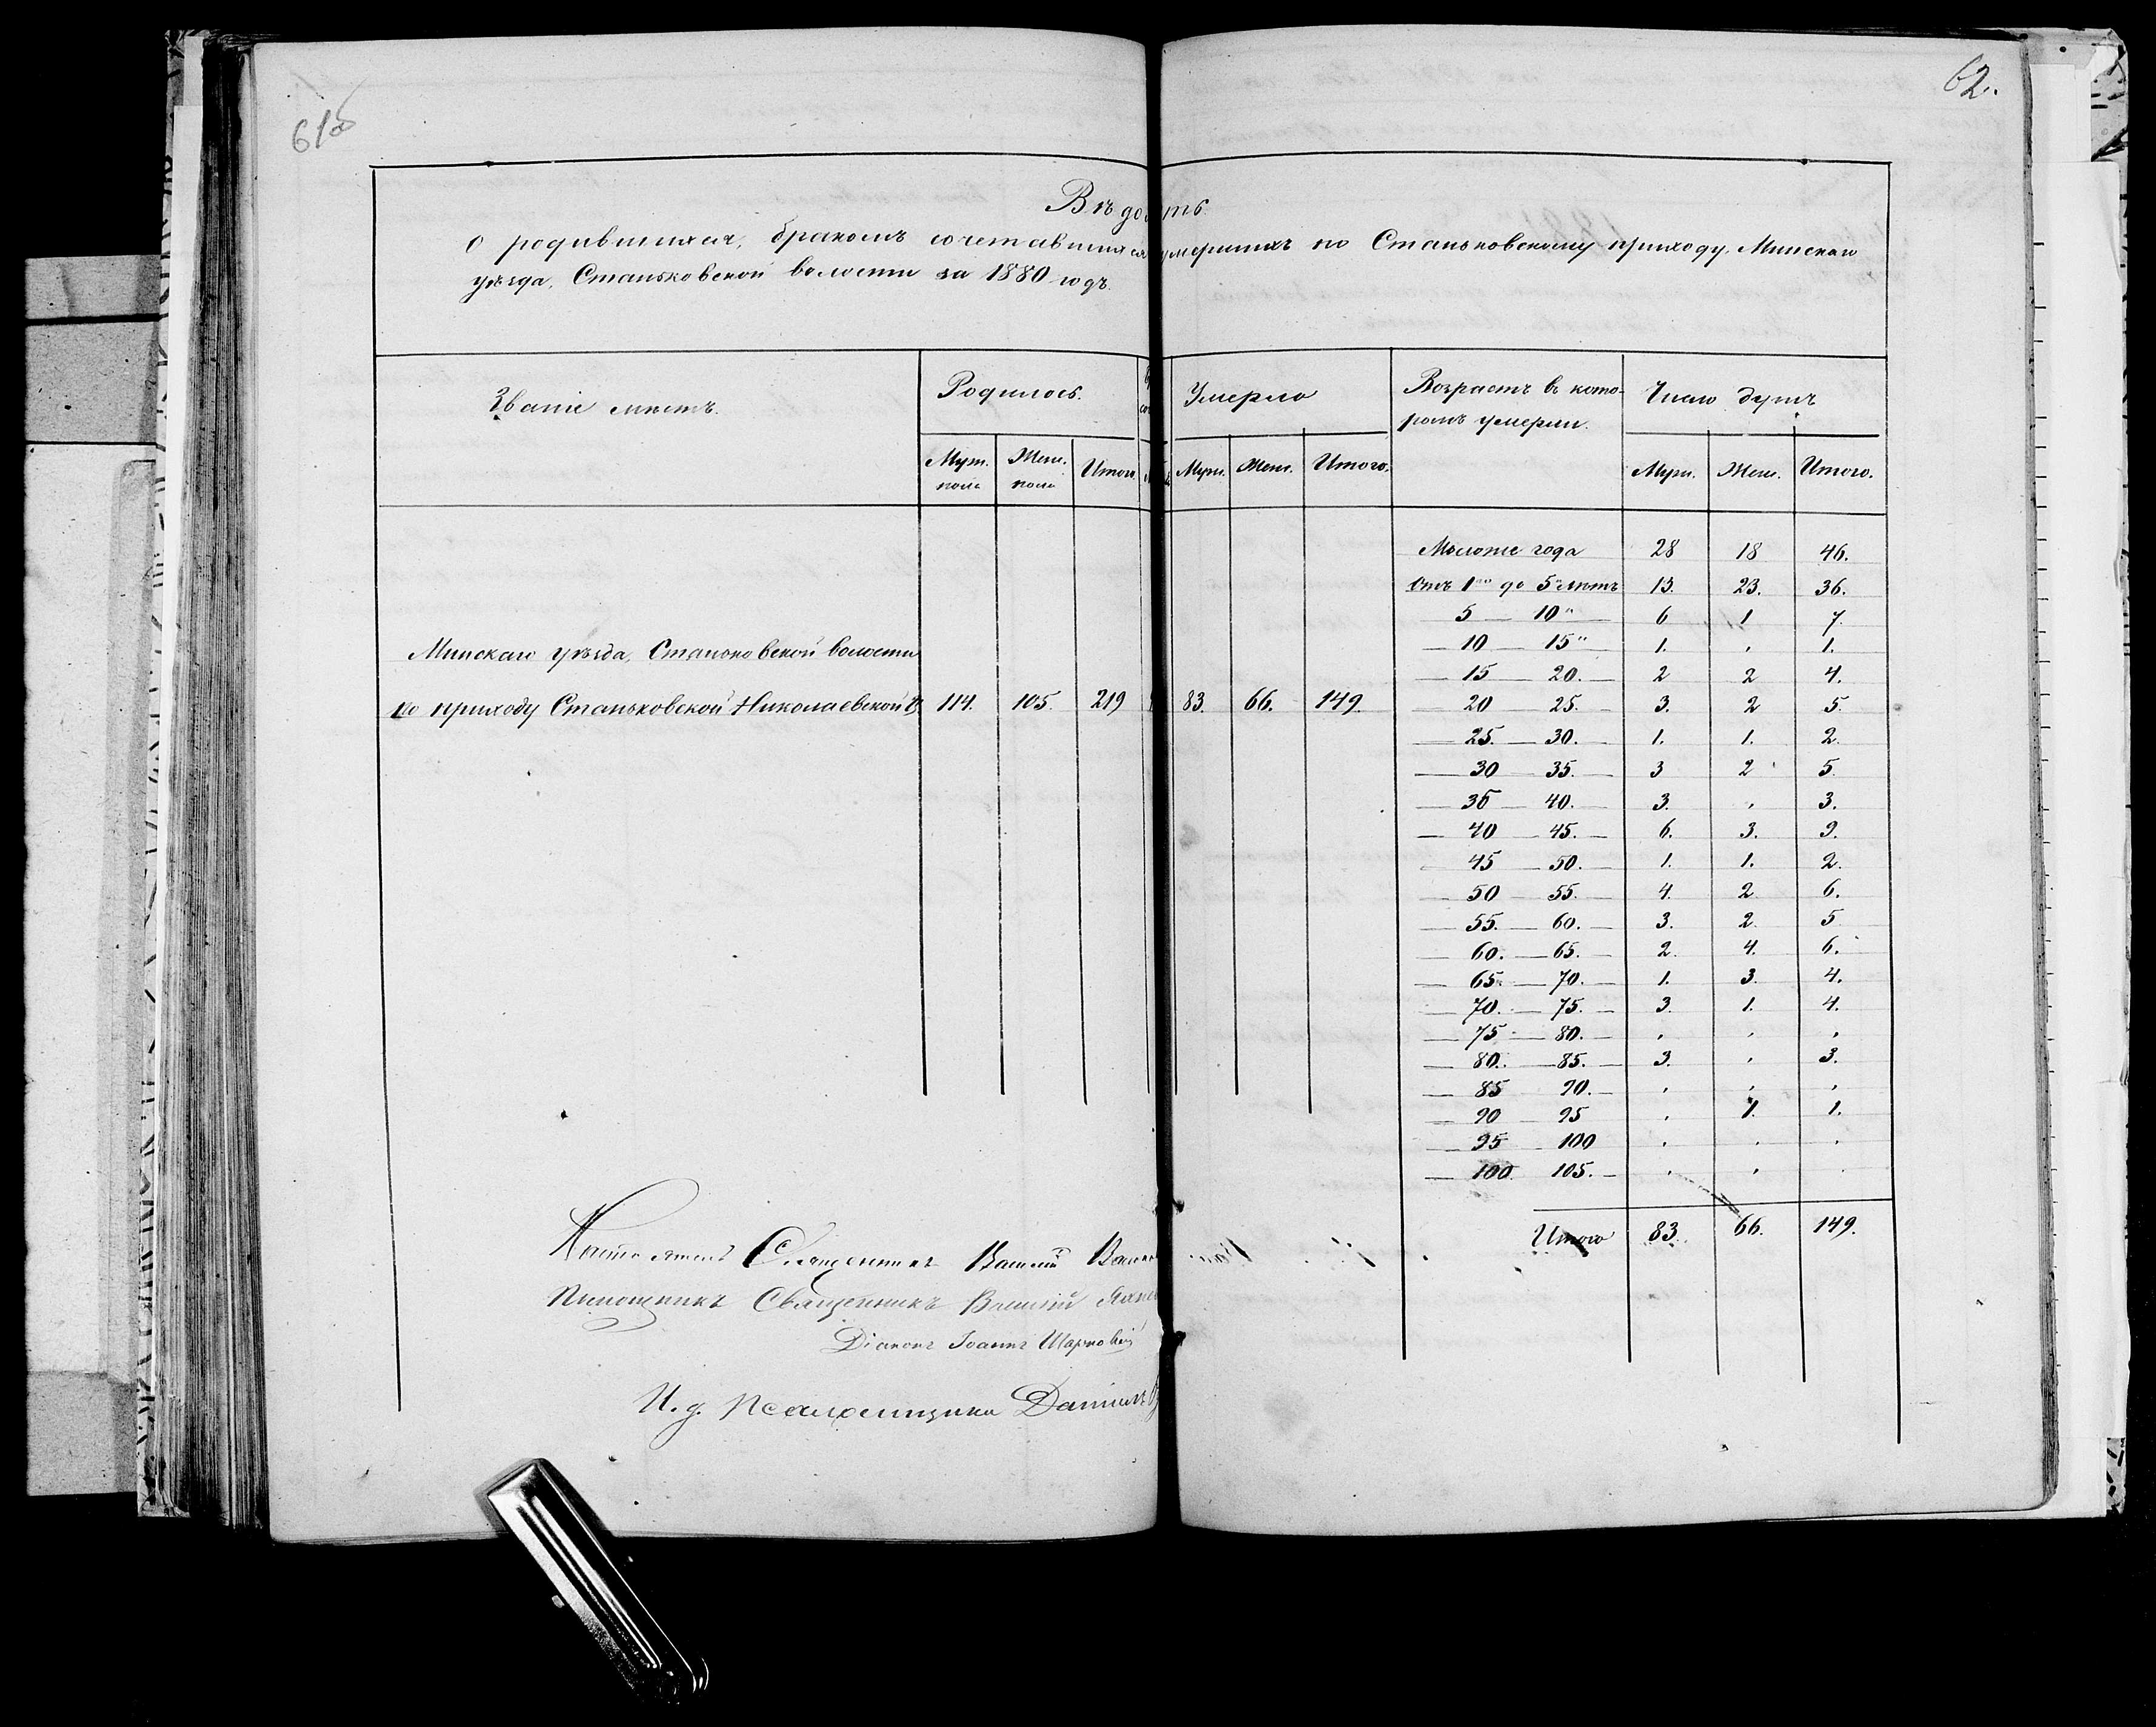 61об
62.
Вѣдомость
о родившихся, бракомъ сочетавшихся умершихъ по Станьковскому приходу, Минскаго
уѣзда, Станьковской волости за 1880 годъ.
Званіе мѣстъ. Родилось. Умерло Возрастъ въ кото- Число душъ
ромъ умерли.
Муж. Жен. Итого. Муж. Жен. Итого. Муж. Жен. Итого.
пола пола
Моложе года 28 18 46.
Отъ 1го до 5 лѣтъ 13. 23. 36.
5 — 10" 6 1 7.
Минскаго уѣзда, Станьковской волости — 10 — 15" 1. " 1.
— 15 — 20. — 2 2 4.
по приходу Станьковской Николаевской ц. 114. 105. 219 83. 66. 149. — 20 — 25. — 3. 2 5.
— 25. — 30. — 1. 1. 2.
— 30 — 35. — 3 2 5.
— 35 — 40. — 3. " 3.
— 40 — 45. — 6. 3. 9.
— 45 — 50. — 1. 1. 2.
— 50 — 55. — 4. 2 6.
— 55. — 60. — 3. 2. 5
— 60. — 65. — 2. 4. 6.
— 65. — 70. — 1. 3. 4.
— 70. — 75. — 3. 1. 4.
— 75 — 80. — " " "
— 80. — 85. — 3. " 3.
— 85 — 90. — " " "
— 90 — 95 " 1. 1.
— 95 — 100 " " "
— 100. 105. — " "
Итого 83. 66. 149.
Настоятель Священникъ Василій
Помощникъ Священникъ Василій
Діаконъ Іоаннъ
И. д. Псаломщика Даніилъ